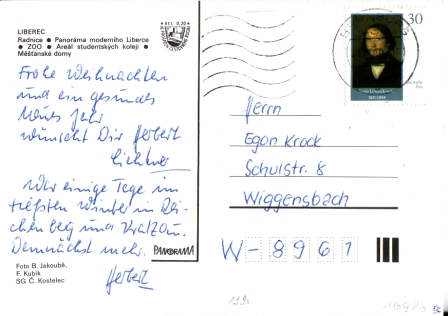 LIBEREC
Radnice • Panoráma moderního Liberce
• ZOO • Areál studentských kolejí •
Měšťanské domy
Frohe Weihnachten
und ein gesundes
neues Jahr
wünscht Dir Herbert
War einige Tage im
tiefsten Winter in Rei-
chenberg und Kratzau.
Demnächst mehr.
Herbert
Foto B. Jakoubě,
F. Kubík
SG Č. Kostelec
PANORAMA
30
Herrn
Egon Krock
Schulstr. 8
Wiggensbach
W-8961